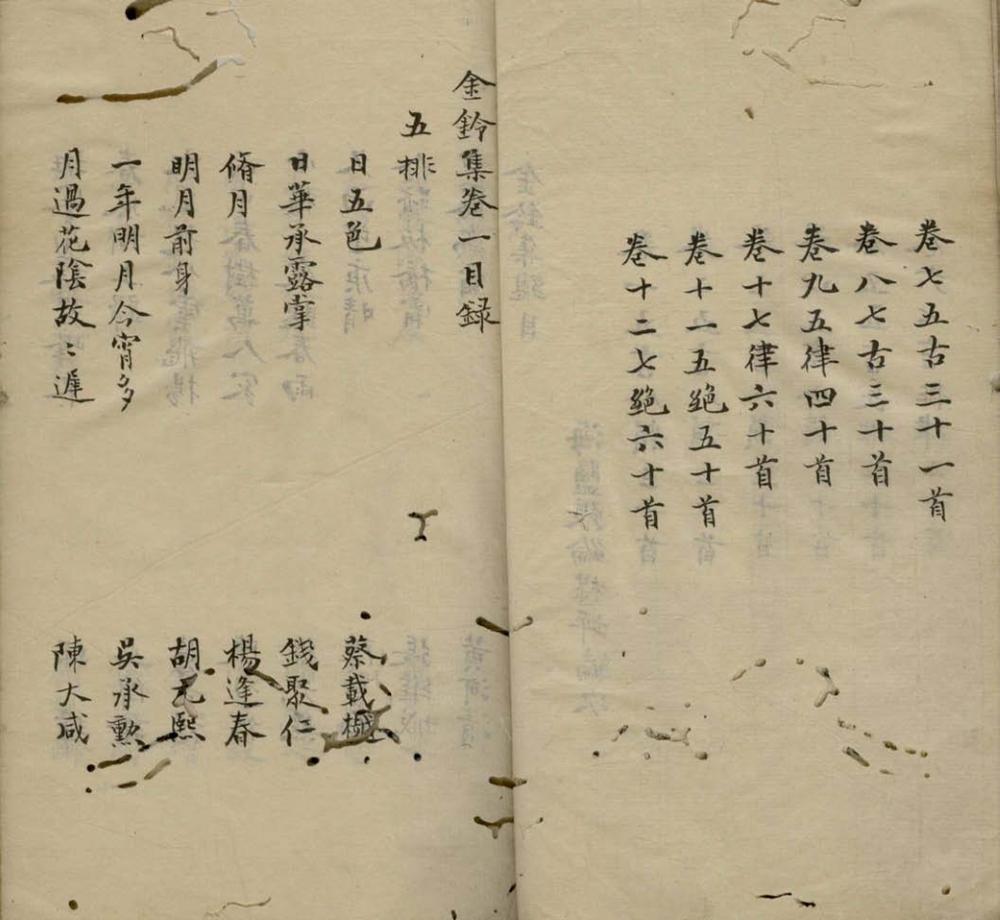 卷七五古三十一首
卷八七古三十首
卷九五律四十首
卷十七律六十首
卷十一五絶五十首
卷十二七絶六十首
金鈴集卷一目録
五排
日五色 蔡載樾
日華承露掌 錢聚仁
脩月 楊逢春
明月前身 胡元熙
一年明月今宵多 吳承勲
月過花陰故〻遲 陳大咸